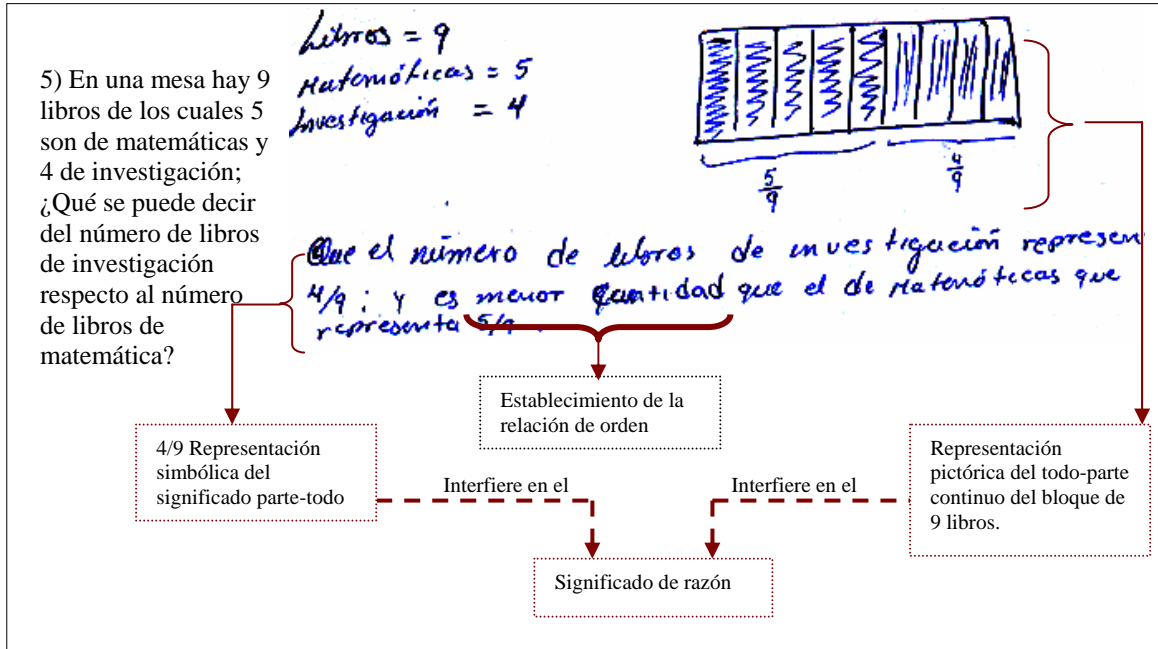 5) En una mesa hay 9
libros de los cuales 5
son de matemáticas y
4 de investigación;
¿Qué se puede decir
del número de libros
de investigación
respecto al número
de libros de
matemática?
Libros = 9
Matemáticas = 5
Investigación = 4
5/9
4/9
Que el número de libros de investigación represen
4/9 ; y es menor cantidad que el de Matemáticas que
representa 5/9.
Establecimiento de la
relación de orden
4/9 Representación
simbólica del
significado parte-todo
Interfiere en el
Interfiere en el
Representación
pictórica del todo-parte
continuo del bloque de
9 libros.
Significado de razón